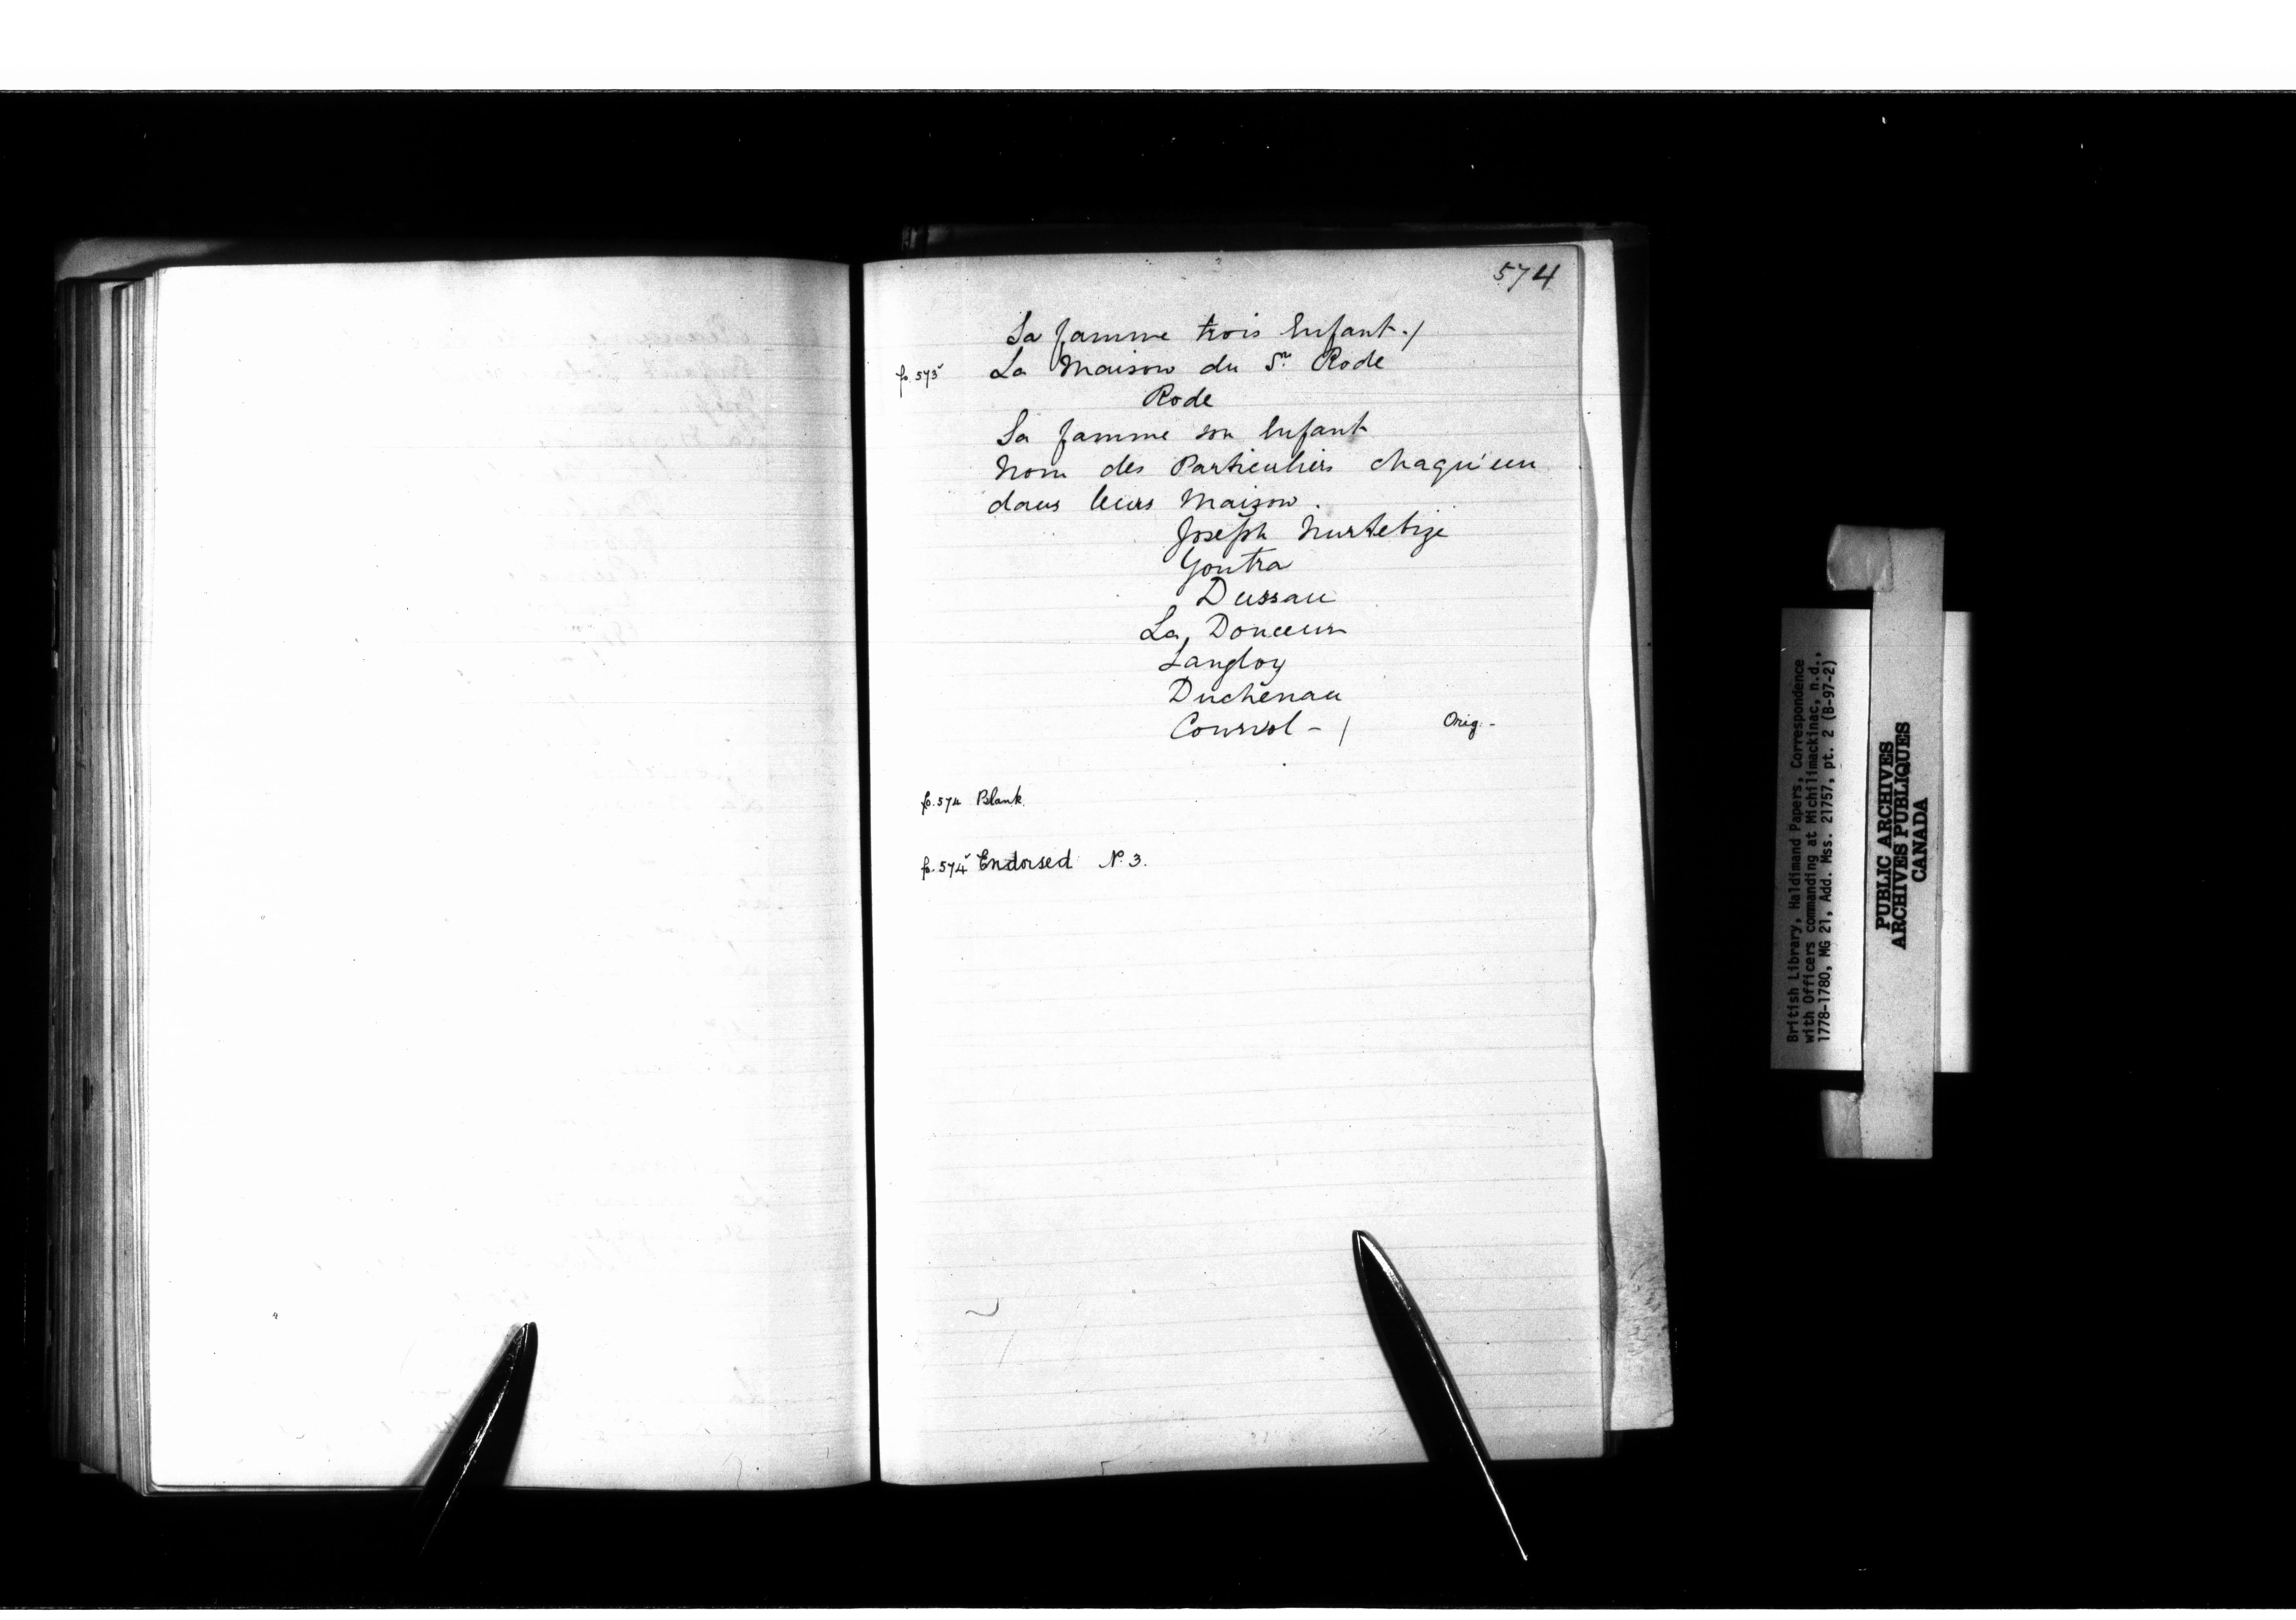 574
Sa famme trois Enfant./
fo. 573v La Maison du Sr. Rode
Rode
Sa famme son Enfant
Nom des Particuliers chaqu'eun
dans leurs Maison.
Joseph Hurtebize
Goutra
Dussau
La, Douceur
Langloy
Duchênau
Coursol - /
Orig. -
fo. 574 Blank.
fo. 574v Endorsed N. 3.
British Library, Haldimand Papers, Correspondence
with Officers commanding at Michilimackinac, n.d.,
1778-1780, MG 21, Add. Mss. 21757, pt. 2 (B-97-2)
PUBLIC ARCHIVES
ARCHIVES PUBLIQUES
CANADA